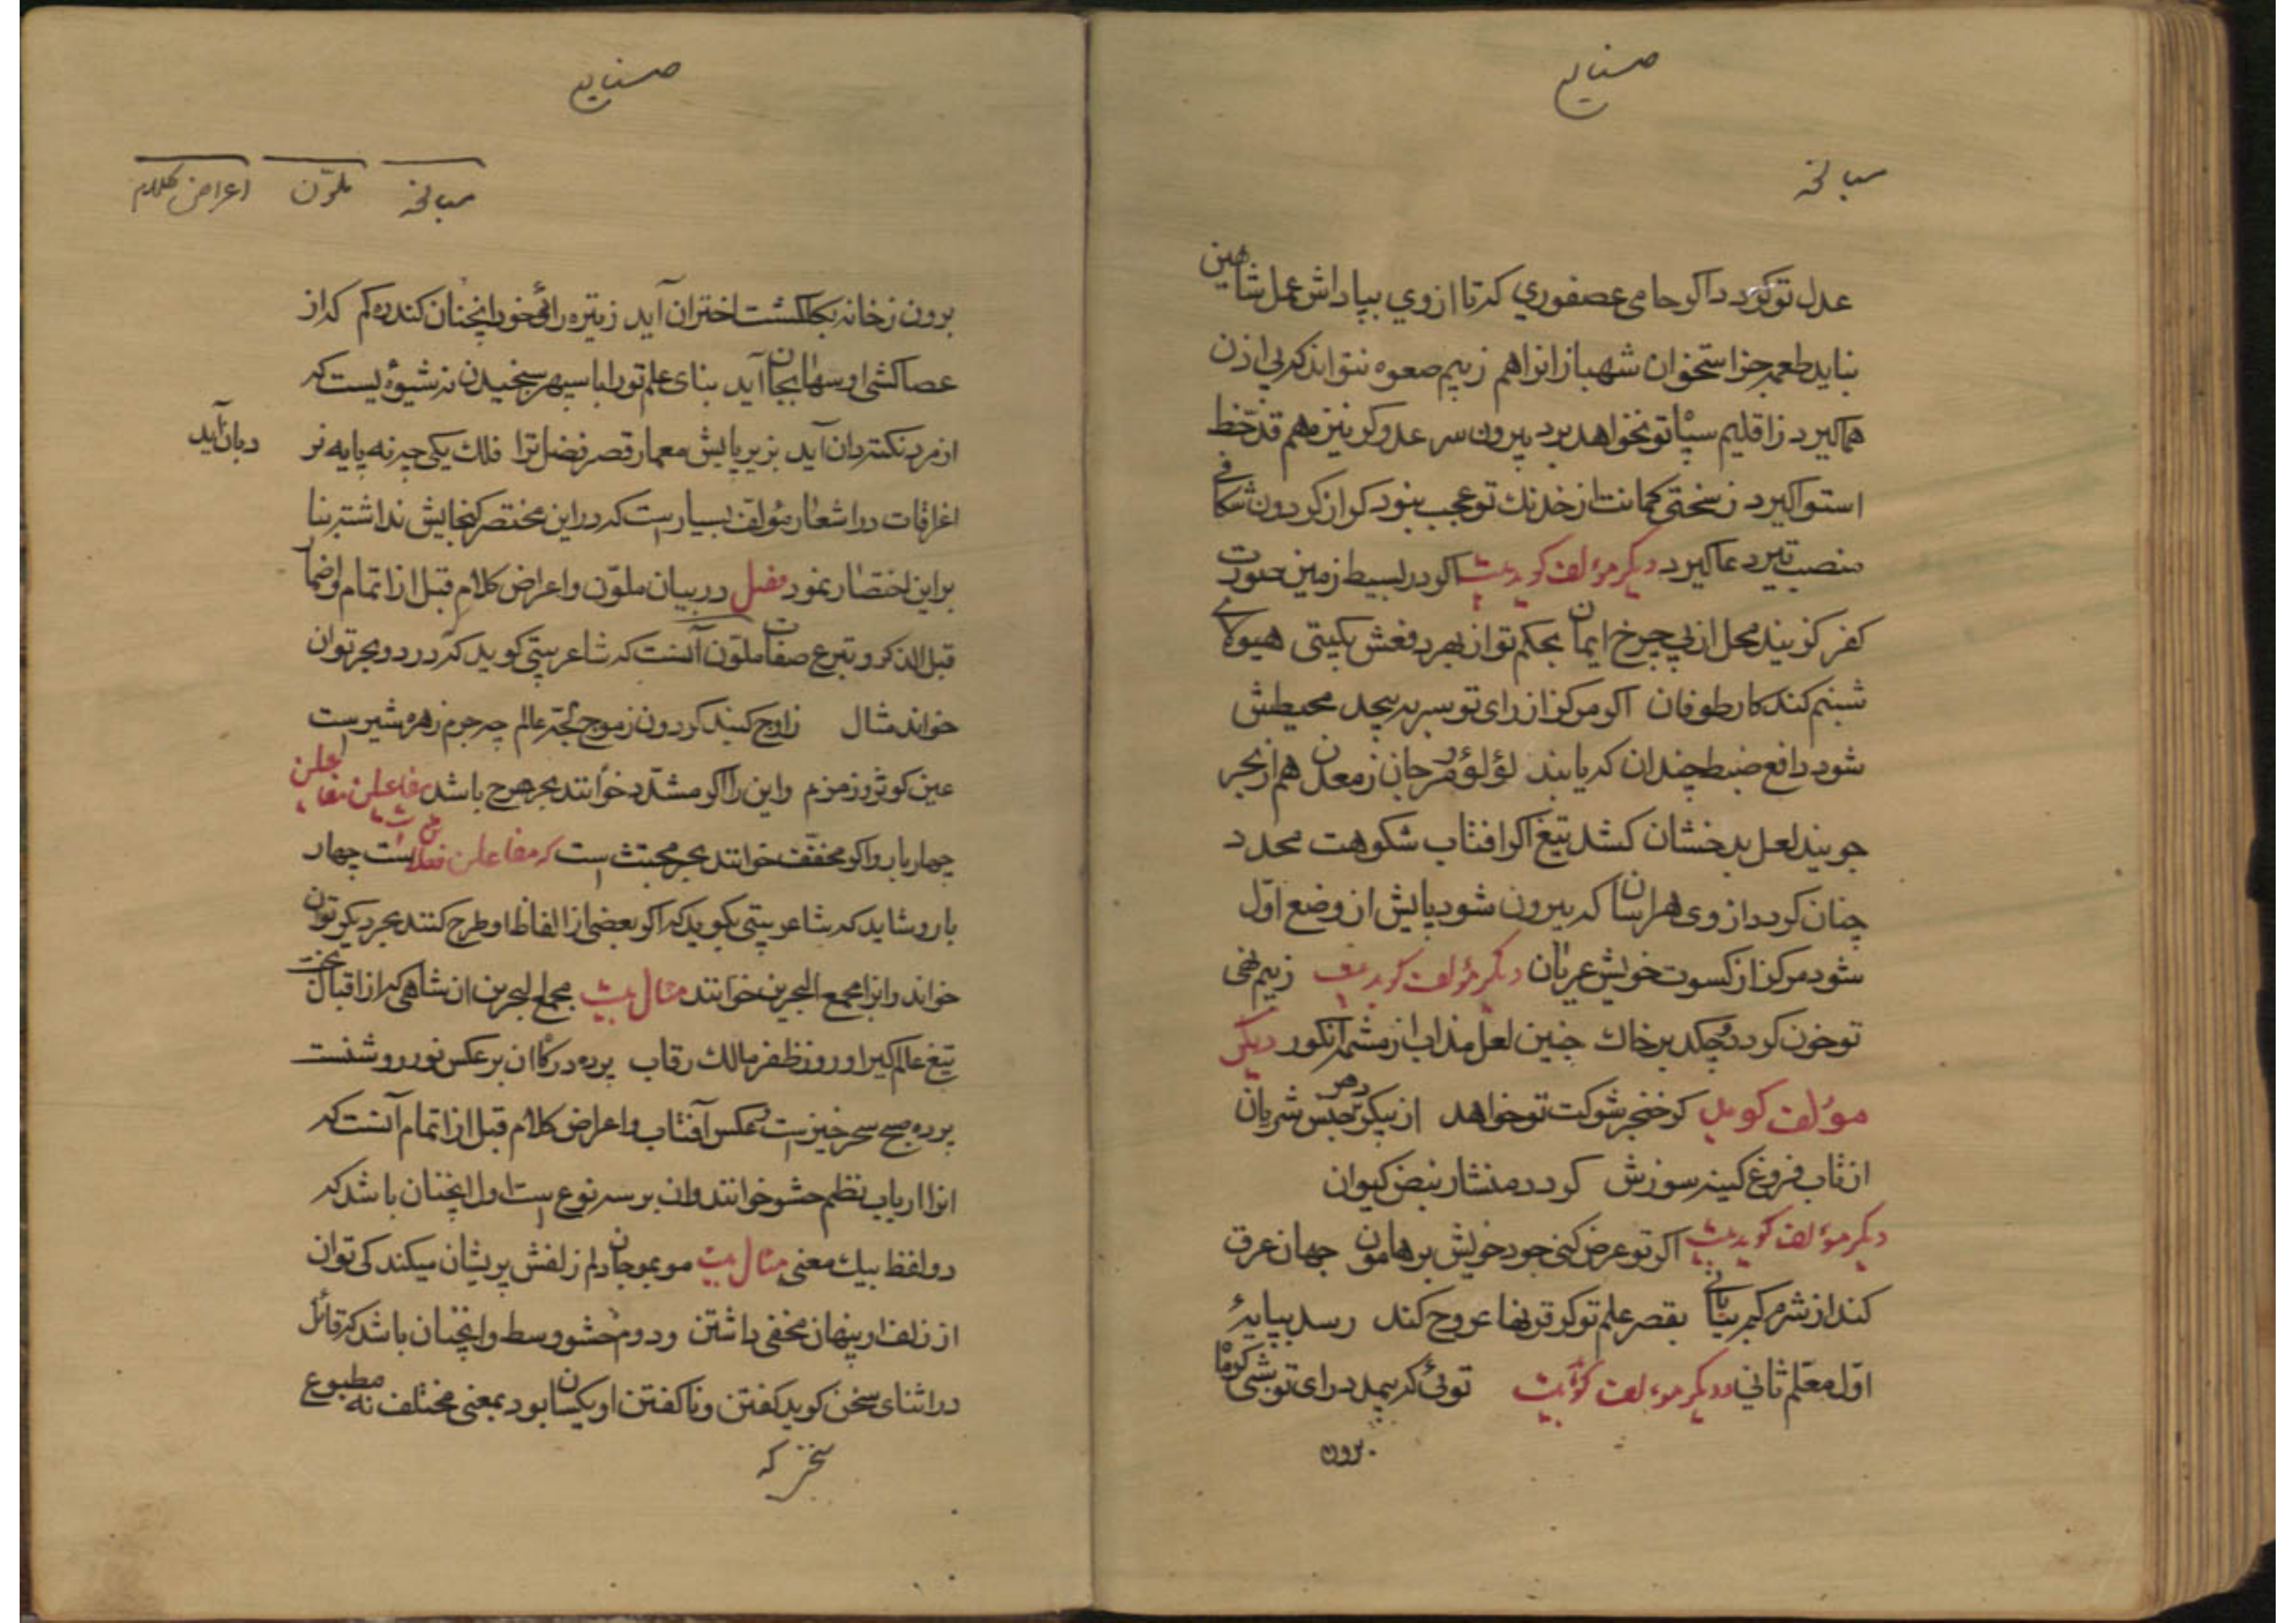 صنایع
مبالغه
عدل تو گردد اگر حامی عصفوری که تا از وی بپاداش عمل شاهین
نیاید طعمه جز استخوان شهباز انرا هم ز بیم صعوه نتواند که بی اذن
هما گیرد ز اقلیم سپاتو نخواهد برد بیرون سر عدو گر نیزه هم قد خط
استوا گیرد ز سختی کمانت از خدنک تو عجب نبود که از گردون شکافی
منصب تیر دعا گیرد دیگر مؤلف گوید بیت اگر در بسیط زمین صورت
کفر گزیند محل از پی چرخ ایمان بحکم تو از بهر دفعش بگیتی هیولای
شبنم کند کار طوفان اگر مرکز از رای تو سر بپیچد محیطش
شود دافع ضبط چندان که یابند لؤلؤ و مرجان ز معدن هم از بحر
جویند لعل بدخشان کشد تیغ اگر افتاب شکوهت محدد
چنان گردد از وی هراسان که بیرون شود پایش از وضع اول
شود مرکز از کسوت خویش عریان دیگر مؤلف گوید بیت ز بیم نهی
تو خون گردد و چکد بر خاک جنین لعل مذاب از مشیمه انگور دیگر
مؤلف گوید گر خنجر شوکت تو خواهد از پیکر دهر جبس شریان
از تاب فروغ کینه سوزش گردد منشار نبض کیوان
دیگر مؤلف گوید بیت اگر تو عرض کنی جود خویش بر هامون جهان عرق
کند از شرم گهر نیسانی بقصر علم تو گر قرنها عروج کند رسد بپایهٔ
اول معلم ثانی و دیگر مؤلف گوید بیت توئی که بیمدد رای تو بشی گوما
برون
صنایع
مبالغه ملوّن اعراض کلام
برون ز خانه بجا کشت اختران آید ز تیره رائی خود انچنان کند ره گم که از
عصاکشی او سها بجان آید بنای علم تو را با سپهر سنجیدن نه شیوه یست که
از مرد نکته دان آید بزیر پایش معمار قصر فضل ترا فلک یکی چه نه پایه نر
دبان آید
اغراقات در اشعار مؤلف بسیار است که در این مختصر گنجایش نداشته بنا
بر این اختصار نمود فصل در بیان ملوّن و اعراض کلام قبل از اتمام و اضمار
قبل الذکر و تبرع صفات ملوّن آنست که شاعر بیتی گوید که در دو بحر توان
خواند مثال ز اوج گنبد گردون ز موج لجهٔ عالم چه جرم زهره شیر است
عین کوثر و زمزم و این را اگر مشدّد خوانند بحر هزج باشد مفاعیلن مفاعیلن
چهار بار و اگر مخفّف خوانند بحر مجتث است که مفاعلن فعلاتن است چهار
بار و شاید که شاعر بیتی بگوید که اگر بعضی از الفاظ او طرح کنند بحر دیگر توان
خواند و انرا مجمع البحرین خوانند مثال بیت مجمع البحرین ان شاهی که از اقبال بخت
تیغ عالم گیر او روز ظفر مالک رقاب پرده درگاه ان بر عکس نور روشنست
پرده صبح سحر خیز است عکس آفتاب و اعراض کلام قبل از اتمام آنست که
انرا ارباب نظم حشو خوانند و ان بر سه نوع است اول اینچنان باشد که
دو لفظ بیک معنی مثال بیت مو بمو جان دلم زلفش پریشان میکند کی توان
از زلف او پنهان مخفی داشتن و دوم حشو وسط و اینچنان باشد که قائل
در اثنای سخن گوید گفتن و ناگفتن او یکسان بود بمعنی مختلف نه مطبوع
که